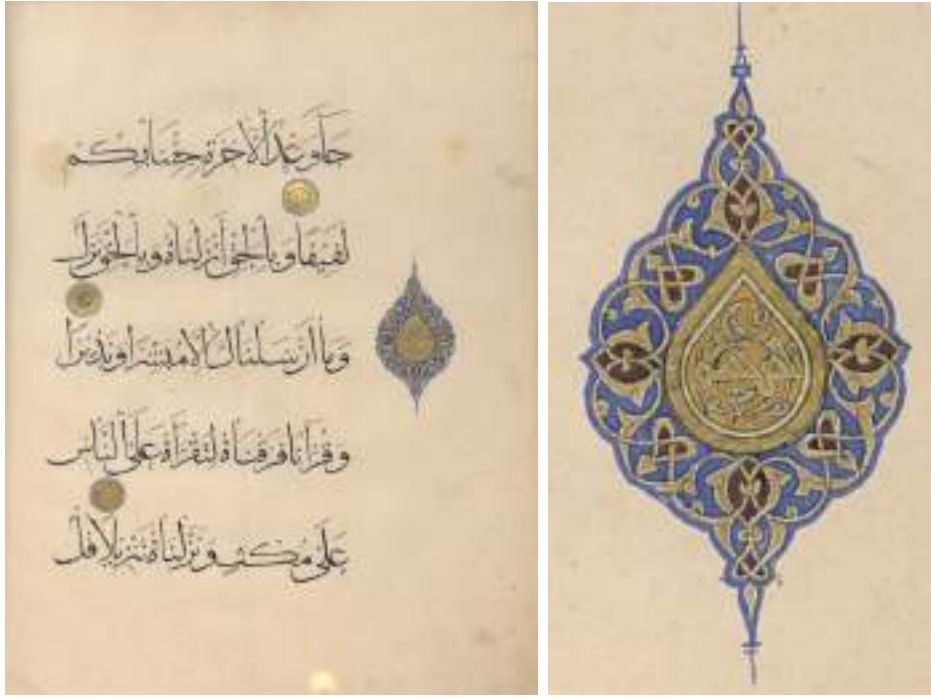 جَآوَعْدُ ٱلْأَخِرَةِ جِئْنَابِكُمْ
لَفِيفًا وَبِٱلْحَقِّ أَنْزَلْنَاهُ وَبِٱلْحَقِّ نَزَلَ
وَمَا أَرْسَلْنَاكَ إِلَّا مُبَشِّرًا وَنَذِيرًا
وَقُرْآنًا فَرَقْنَاهُ لِتَقْرَأَهُ عَلَى ٱلنَّاسِ
عَلَى مُكْثٍ وَنَزَّلْنَاهُ تَنْزِيلًا قُلْ